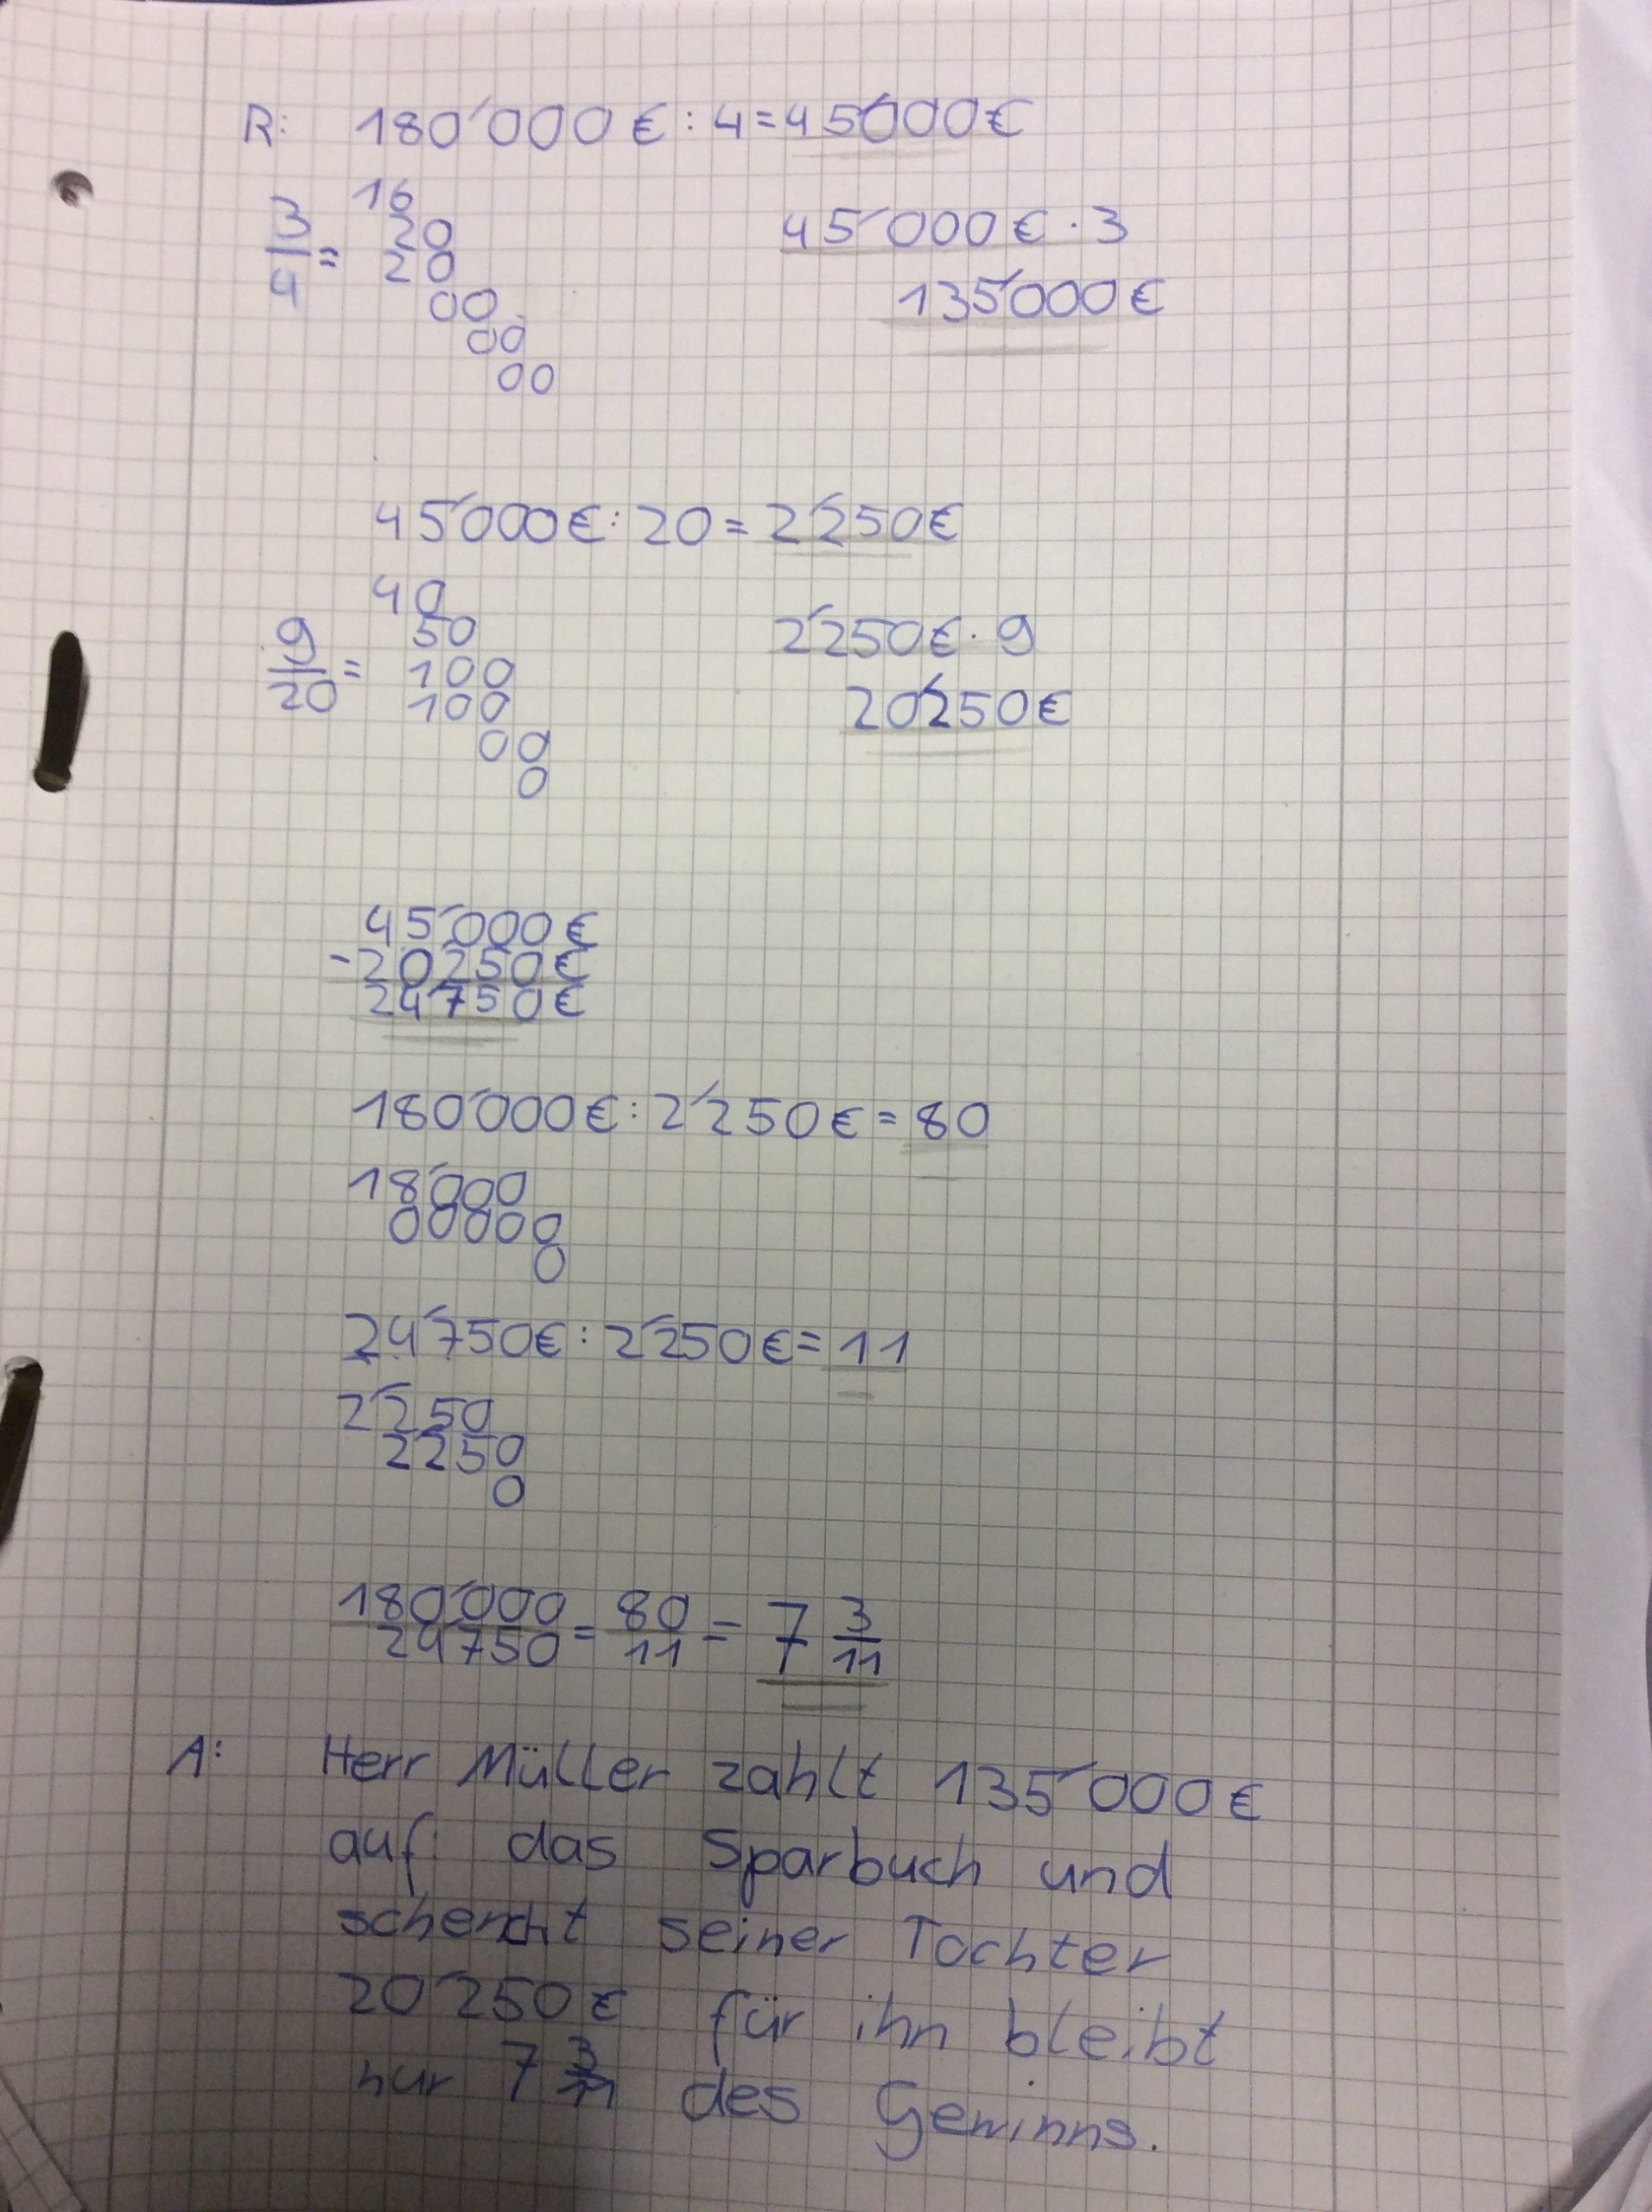 R: 180'000€ : 4 = 45'000€
16
3/4 = 20
20
45'000€ · 3
00
135'000€
00
00
45'000€ : 20 = 2'250€
40
9/20 = 50
100
100
2'250€ · 9
00
20'250€
0
45'000€
-20250€
24'750€
180'000€ : 2'250€ = 80
18'000
00000
0
24'750€ : 2'250€ = 11
2'250
2250
0
180'000/24750 = 80/11 = 7 3/11
A: Herr Müller zahlt 135'000€
auf das Sparbuch und
schencht seiner Tochter
20'250€ für ihn bleibt
nur 7 3/11 des Gewinns.